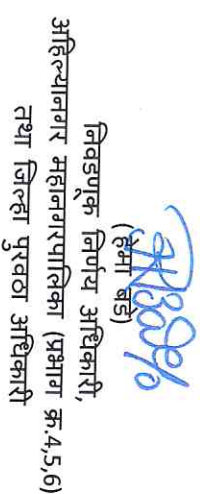 (हेमा बडे)
निवडणूक निर्णय अधिकारी,
अहिल्यानगर महानगरपालिका (प्रभाग क्र.4,5,6)
तथा जिल्हा पुरवठा अधिकारी